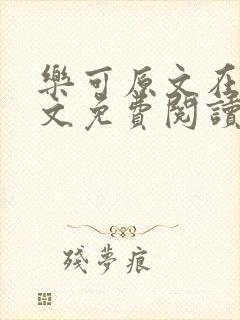 樂可原文在
文免費閱讀
殘夢痕